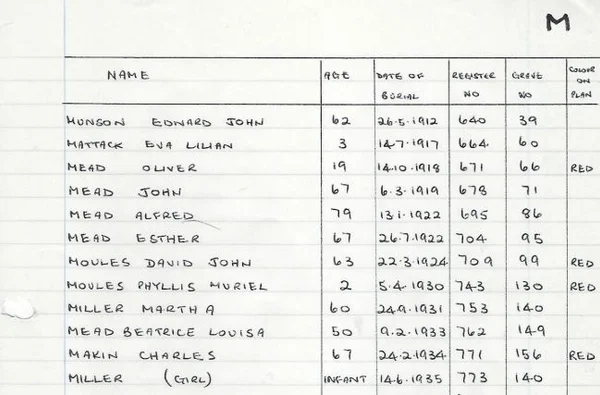 M
NAME AGE DATE OF BURIAL REGISTER NO GRAVE NO COLOUR ON PLAN
MUNSON EDWARD JOHN 62 26.5.1912 640 39
MATTACK EVA LILIAN 3 14.7.1917 664 60
MEAD OLIVER 19 14.10.1918 671 66 RED
MEAD JOHN 67 6.3.1919 678 71
MEAD ALFRED 79 13.1.1922 695 86
MEAD ESTHER 67 26.7.1922 704 95
MOULES DAVID JOHN 63 22.3.1924 709 99 RED
MOULES PHYLLIS MURIEL 2 5.4.1930 743 130 RED
MILLER MARTHA 60 24.9.1931 753 140
MEAD BEATRICE LOUISA 50 9.2.1933 762 149
MAKIN CHARLES 67 24.2.1934 771 156 RED
MILLER (GIRL) INFANT 14.6.1935 773 140